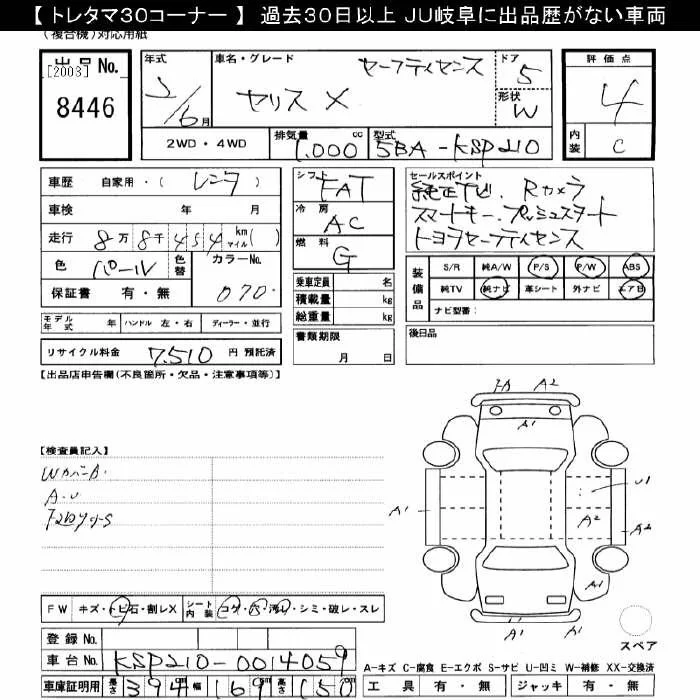 【 トレタマ30コーナー 】 過去30日以上 JU岐阜に出品歴がない車両
(複合機)対応用紙
出品No.
[2003]
8446
年式
2/6月
車名・グレード
セーフティセンス
ヤリス X
ドア
5
形状
W
評価点
4
内装
C
2WD・4WD
排気量
1,000 cc
型式
5BA-KSP210
車歴 自家用・( レンタ )
車検 年 月
走行 8万8千454 km マイル( )
色 パール 色替 カラーNo.
070
保証書 有・無
モデル年式 年 ハンドル 左・右 ディーラー・並行
リサイクル料金 7,510 円 預託済
シフト
FAT
冷房
AC
燃料
G
乗車定員 名
積載量 kg
総重量 kg
書類期限
月 日
セールスポイント
純正ナビ. Rカメラ
スマートキー. プッシュスタート
トヨタセーフティセンス
装備品
S/R 純A/W P/S P/W ABS
純TV 純ナビ 革シート 外ナビ エアB
ナビ型番:
後日品
【出品店申告欄(不良箇所・欠品・注意事項等)】
【検査員記入】
Wカバー
A.U
A2
A1
A1
U1
A2
A2
A1
A1
A1
FW キズ・トビ石・割レX シート内装 コゲ・穴・汚レ・シミ・破レ・スレ
スペア
登録No.
車台No. KSP210-0014059
A-キズ C-腐食 E-エクボ S-サビ U-凹ミ W-補修 XX-交換済
車庫証明用 長さ 394 cm 幅 169 cm 高さ 150 cm
工具 有・無 ジャッキ 有・無